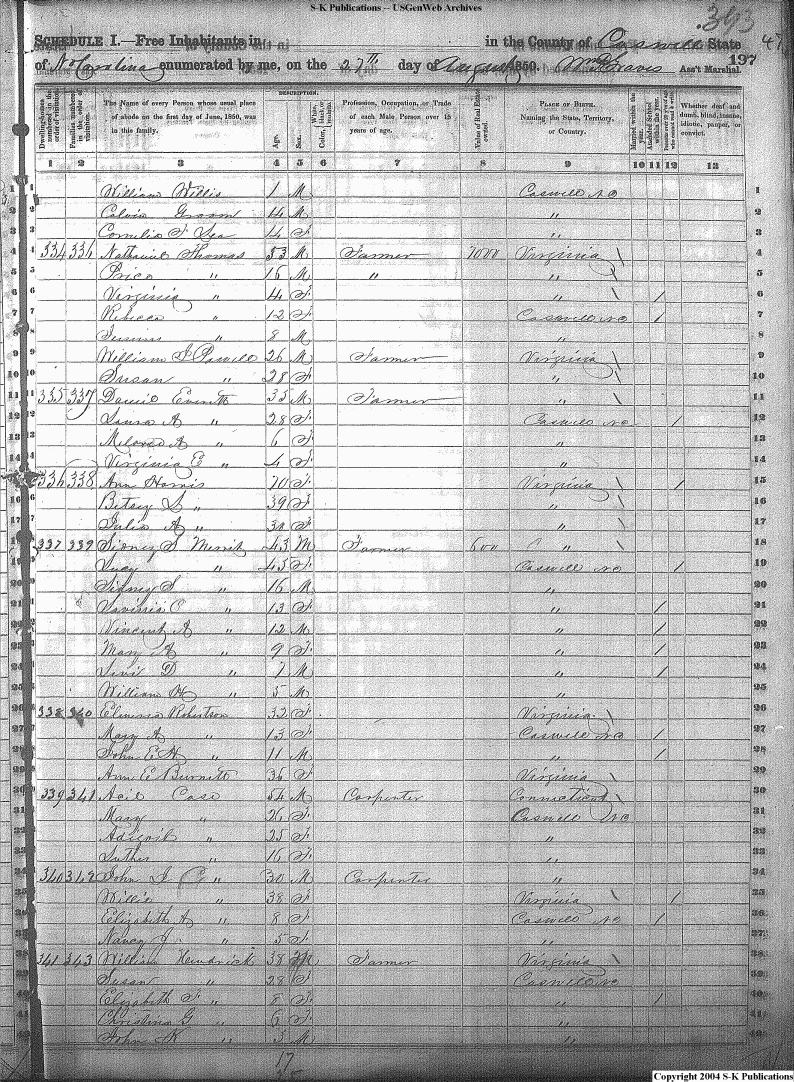 S-K Publications -- USGenWeb Archives
393
47
SCHEDULE I.—Free Inhabitants in in the County of Caswell State
of N. Carolina enumerated by me, on the 27th day of August 1850. Ass't Marshal.
197
Dwelling-houses numbered in the order of visitation. Families numbered in the order of visitation. The Name of every Person whose usual place of abode on the first day of June, 1850, was in this family. DESCRIPTION. Age. Sex. Color, White, black, or mulatto. Profession, Occupation, or Trade of each Male Person over 15 years of age. Value of Real Estate owned PLACE OF BIRTH. Naming the State, Territory, or Country. Married within the year. Attended School within the year. Persons over 20 y'rs of age who cannot read & write. Whether deaf and dumb, blind, insane, idiotic, pauper, or convict.
1 2 3 4 5 6 7 8 9 10 11 12 13
1 William Willis 1 M Caswell NC 1
2 Calvin Groom 4 M " 2
3 Cornelia F Lea 4 F " 3
4 334 336 Nathaniel Thomas 53 M Farmer 7000 Virginia \ 4
5 Price " 16 M " " \ 5
6 Virginia " 4 F " \ / 6
7 Rebecca " 12 F Caswell NC / 7
8 " 8 M " 8
9 William J Powell 26 M Farmer Virginia \ 9
10 Susan " 28 F " \ 10
11 335 337 Daniel Everett 35 M Farmer " \ 11
12 Laura A " 28 F Caswell NC / 12
13 Mildred A " 6 F " 13
14 Virginia E " 4 F " 14
15 336 338 Ann Harris 70 F Virginia \ / 15
16 Betsey S " 39 F " \ 16
17 Julia A " 30 F " \ 17
18 337 339 Sidney S Merritt 43 M Farmer 600 " \ 18
19 Lucy " 43 F Caswell NC / 19
20 Sidney S " 16 M " 20
21 Lavinia C " 13 F " / 21
22 Vincent A " 12 M " / 22
23 Mary A " 9 F " / 23
24 Levi D " 7 M " / 24
25 William H " 5 M " 25
26 338 340 Robertson 32 F Virginia \ 26
27 Mary A " 13 F Caswell NC / 27
28 John E H " 11 M " / 28
29 Ann E Burnett 36 F Virginia \ 29
30 339 341 Case 54 M Carpenter Connecticut \ 30
31 Mary " 26 F Caswell NC 31
32 Abigail " 25 F " 32
33 Luther " 16 F " 33
34 340 342 John " 30 M Carpenter " 34
35 Willis " 38 F Virginia \ / 35
36 Elizabeth A " 8 F Caswell NC / 36
37 Nancy J " 5 F " 37
38 341 343 William Hendrick 38 M Farmer Virginia \ 38
39 Susan " 28 F Caswell NC 39
40 Elizabeth F " 8 F " / 40
41 Christina G " 6 F " 41
42 John K " 3 M " 42
17
Copyright 2004 S-K Publications